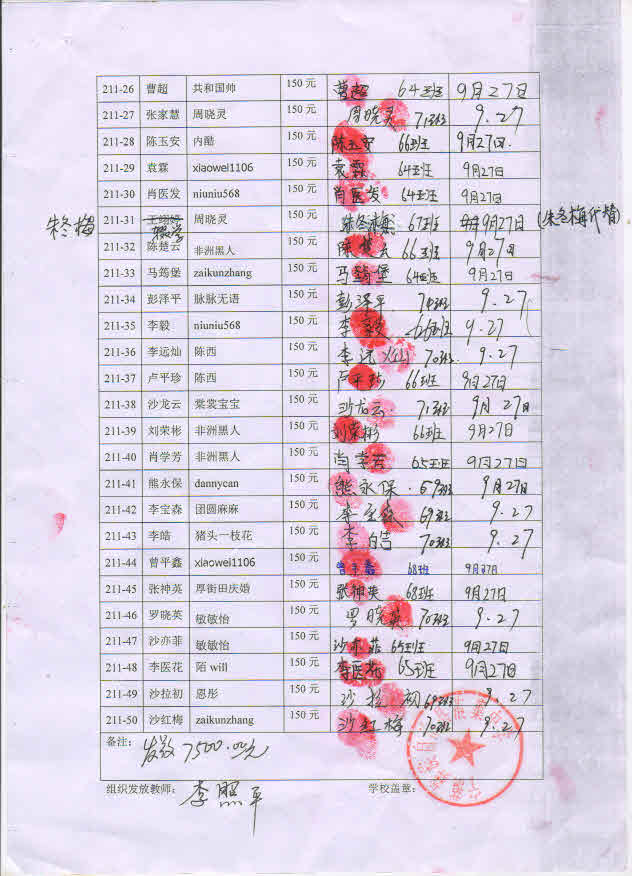 211-26 曹超 共和国帅 150 元 曹超 64班 9月27日
211-27 张家慧 周晓灵 150 元 周晓灵 71班 9.27
211-28 陈玉安 内酷 150 元 陈玉安 66班 9月27日.
211-29 袁霖 xiaowei1106 150 元 袁霖 64班 9月27日
211-30 肖医发 niuniu568 150 元 肖医发 64班 9月27日
朱冬梅 211-31 周晓灵 150 元 朱冬梅 67班 9月27日 (朱冬梅代替)
211-32 陈楚云 非洲黑人 150 元 陈楚云 66班 9月27日
211-33 马筠堡 zaikunzhang 150 元 马筠堡 64班 9月27日
211-34 彭泽平 脉脉无语 150 元 彭泽平 70班 9.27
211-35 李毅 niuniu568 150 元 李毅 66班 9.27
211-36 李远灿 陈西 150 元 李远灿 70班. 9.27
211-37 卢平珍 陈西 150 元 卢平珍 66班 9月27日
211-38 沙龙云 棠裳宝宝 150 元 沙龙云. 71班 9月27日
211-39 刘荣彬 非洲黑人 150 元 刘荣彬 66班 9月27日
211-40 肖学芳 非洲黑人 150 元 肖学芳 65班 9月27日
211-41 熊永保 dannycan 150 元 熊永保. 69班 9月27日
211-42 李宝森 团圆麻麻 150 元 李宝森 69班 9.27
211-43 李皓 猪头一枝花 150 元 李皓 70班 9.27
211-44 曾平鑫 xiaowei1106 150 元 曾平鑫 68班 9月27日
211-45 张神英 厚街田庆婚 150 元 张神英 68班 9月27日
211-46 罗晓英 敏敏怡 150 元 罗晓英 70班 9.27
211-47 沙亦菲 敏敏怡 150 元 沙亦菲 65班 9月27日
211-48 李医花 陌 will 150 元 李医花 65班 9月27日
211-49 沙拉初 恩彤 150 元 沙拉初 69班 9.27
211-50 沙红梅 zaikunzhang 150 元 沙红梅 70班 9.27
备注: 发放7500.00元
组织发放教师: 李照平 学校盖章: